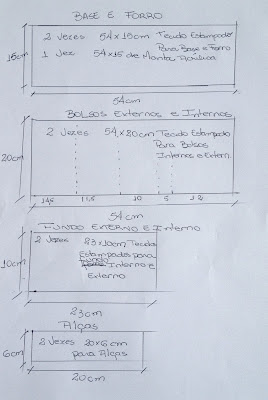 BASE E FORRO
2 Vezes 54x15cm Tecido Estampado
Para Base e Forro
1 Vez 54x15 de Manta Acrílica
15cm
54cm
BOLSOS Externos e Internos
2 Vezes 54x20cm Tecido Estampado
Para Bolsos
Internos e Extern.
20cm
14,5 11,5 10 5 12
54cm
FUNDO EXTERNO E Interno
2 Vezes 23x10cm Tecido
Estampados para
Fundo Interno e
Externo
10cm
23cm
Alças
2 Vezes 20x6cm
para Alças
6cm
20cm